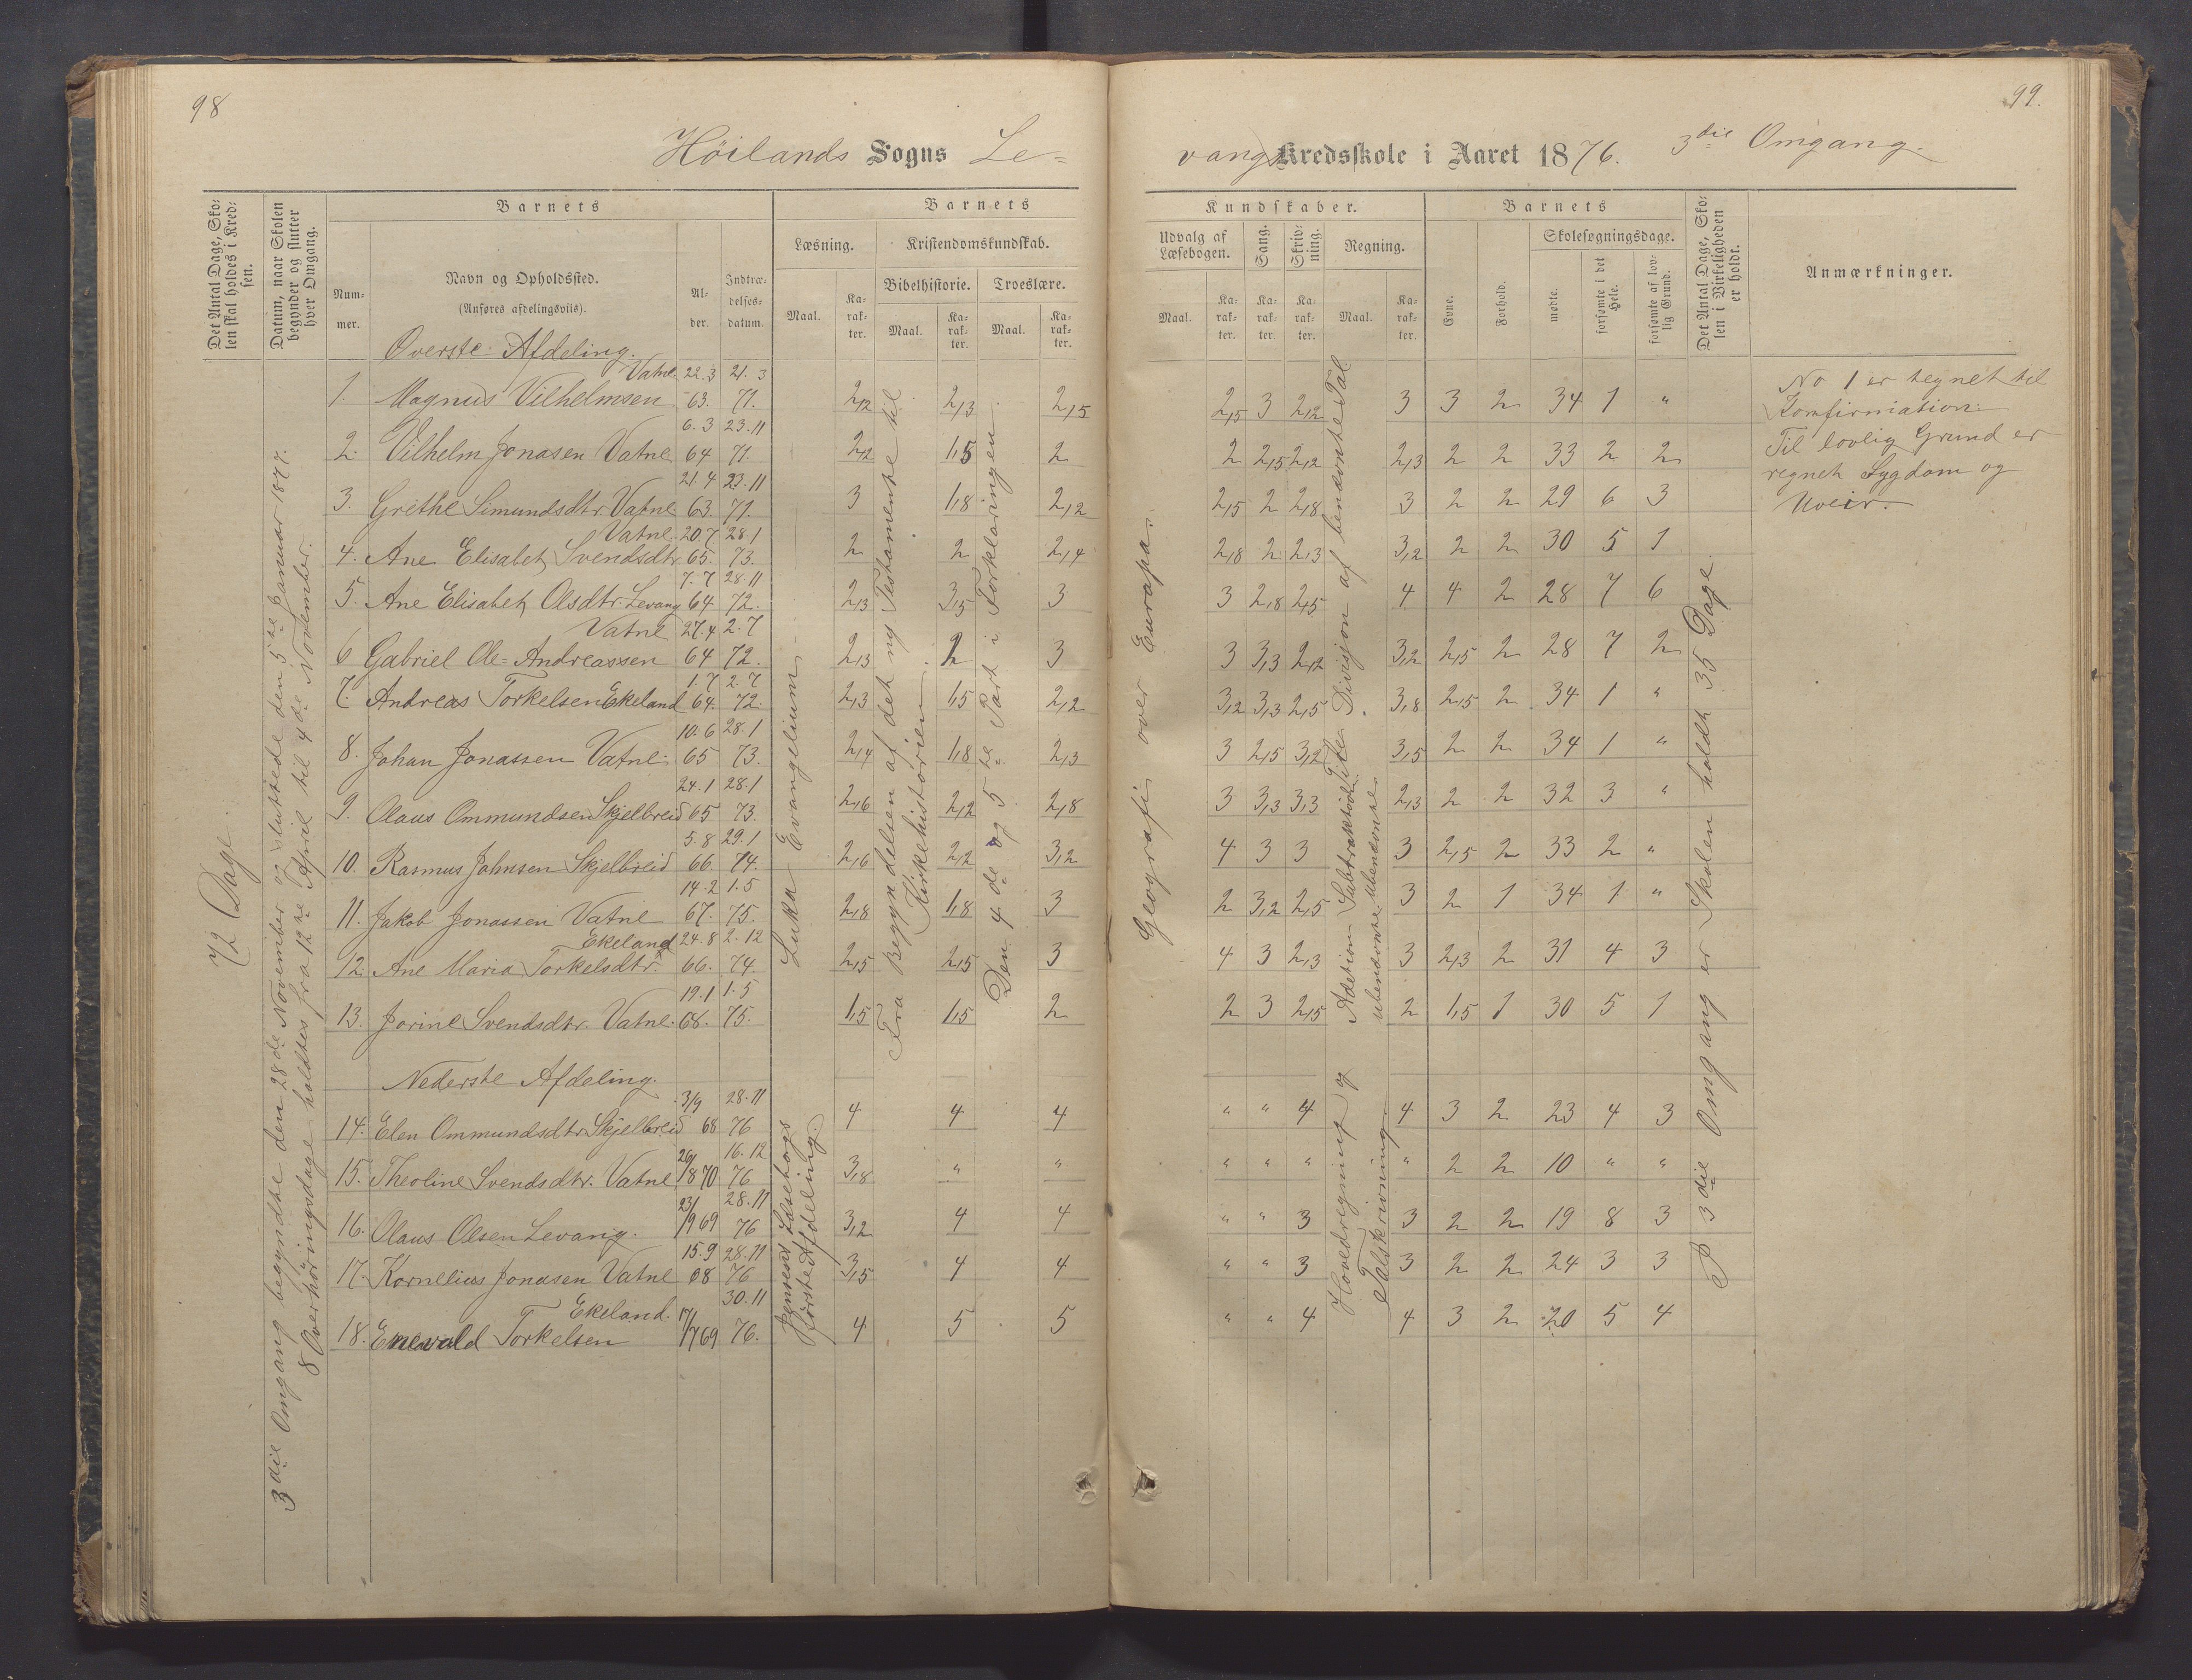 98
Höilands Sogns Le=
Det Antal Dage, Sko=
len skal holdes i Kred=
sen.
Datum, naar Skolen
begynder og slutter
hver Omgang.
Barnets
Barnets
Num=
mer.
Navn og Opholdssted.
(Anføres afdelingsviis).
Al=
der.
Indtræ=
delses=
datum.
Læsning.
Kristendomskundskab.
Bibelhistorie. Troeslære.
Maal.
Ka=
rak=
ter.
Maal.
Ka=
rak=
ter.
Maal.
Ka=
rak=
ter.
72 Dage.
3die Omgang begyndte den 28de November og sluttede den 5te Januar 1877.
8 Overhøringsdage holdtes fra 12te April til 4de November.
Øverste Afdeling.
1. Magnus Vilhelmsen Vatne 22.3 63. 21.3 71. 2,12 2,3 2,15
2. Vilhelm Jonasen Vatne 6.3 64 23.11 71. 2,12 1,5 2
3. Grethe Simundsdtr. Vatne 21.4 63. 23.11 71. 3 1,8 2,12
4. Ane Elisabet Svendsdtr. Vatne 20.7 65. 28.1 73. 2 2 2,4
5. Ane Elisabet Olsdtr. Levang 7.7 64. 28.11 72. 2,3 3,5 3
6 Gabriel Ole=Andreassen Vatne 27.4 64 2.7 72. 2,3 2 3
7. Andreas Torkelsen Ekeland 1.7 64. 2.7 72. 2,3 1,5 2,2
8. Johan Jonassen Vatne 10.6 65 28.1 73. 2,4 1,8 2,3
9. Olaus Ommundsen Skjelbreid 24.1 65 28.1 73. 2,6 2,2 2,8
10. Rasmus Johnsen Skjelbreid 5.8 66 29.1 74. 2,6 2,2 3,2
11. Jakob Jonassen Vatne 14.2 67. 1.5 75. 2,8 1,8 3
12. Ane Maria Torkelsdtr. Ekeland 24.8 66. 2.12 74. 2,5 2,5 3
13. Jorine Svendsdtr. Vatne 19.1 68. 1.5 75. 1,5 1,5 2
Nederste Afdeling.
14. Elen Ommundsdtr. Skjelbreid 3/9 68 28.11 76 4 4 4
15. Theoline Svendsdtr. Vatne 26/1870 16.12 76 3,8 " "
16. Olaus Olsen Levang. 23/1 69 28.11 76 3,2 4 4
17. Kornelius Jonasen Vatne 15.9 68 28.11 76 3,5 4 4
18. Enevald Torkelsen Ekeland. 17/7 69 30.11 76. 4 5 5
Luka Evangelium
Fra Begyndelsen af det ny Testamente til
Kirkehistorien
Den 4de og 5te Part i Forklaringen
Læsebogs
første Afdeling.
99.
vangs Kredsskole i Aaret 1876. 3die Omgang.
Kundskaber.
Barnets
Udvalg af
Læsebogen.
Sang.
Skriv=
ning.
Regning.
Maal.
Ka=
rak=
ter.
Ka=
rak=
ter.
Ka=
rak=
ter.
Maal.
Ka=
rak=
ter.
Evne.
Forhold.
Skolesøgningsdage.
mødte.
forsømte i det
Hele.
forsømte af lov=
lig Grund.
Det Antal Dage, Sko=
len i Virkeligheden
er holdt.
Anmærkninger.
2,15 3 2,12 3 3 2 34 1 "
2 2,15 2,12 2,3 2 2 33 2 2
2,15 2 2,8 3 2 2 29 6 3
2,8 2 2,3 3,2 2 2 30 5 1
3 2,8 2,5 4 4 2 28 7 6
3 3,3 2,12 3,2 2,5 2 28 7 2
3,2 3,3 2,5 3,8 2,5 2 34 1 "
3 2,5 3,2 3,5 2 2 34 1 "
3 3,3 3,3 2,3 2 2 32 3 "
4 3 3 3 2,5 2 33 2 "
2 3,2 2,5 3 2 1 34 1 "
4 3 2,3 3 2,3 2 31 4 3
2 3 2,5 2 1,5 1 30 5 1
" " 4 4 3 2 23 4 3
" " " " 2 2 10 " "
" " 3 3 2 2 19 8 3
" " 3 3 2 2 24 3 3
" " 4 4 3 2 20 5 4
Geografi over Europa
Til Divisjon af benævnte Tal
Adition Subtraktion
ubenævnte
Hovedregning og
Talskrivning
P 3die Omgang er Skolen holdt 35 Dage
No 1 er tegnet til
Konfirmation.
Til lovlig Grund er
regnet Sygdom og
Uveir.